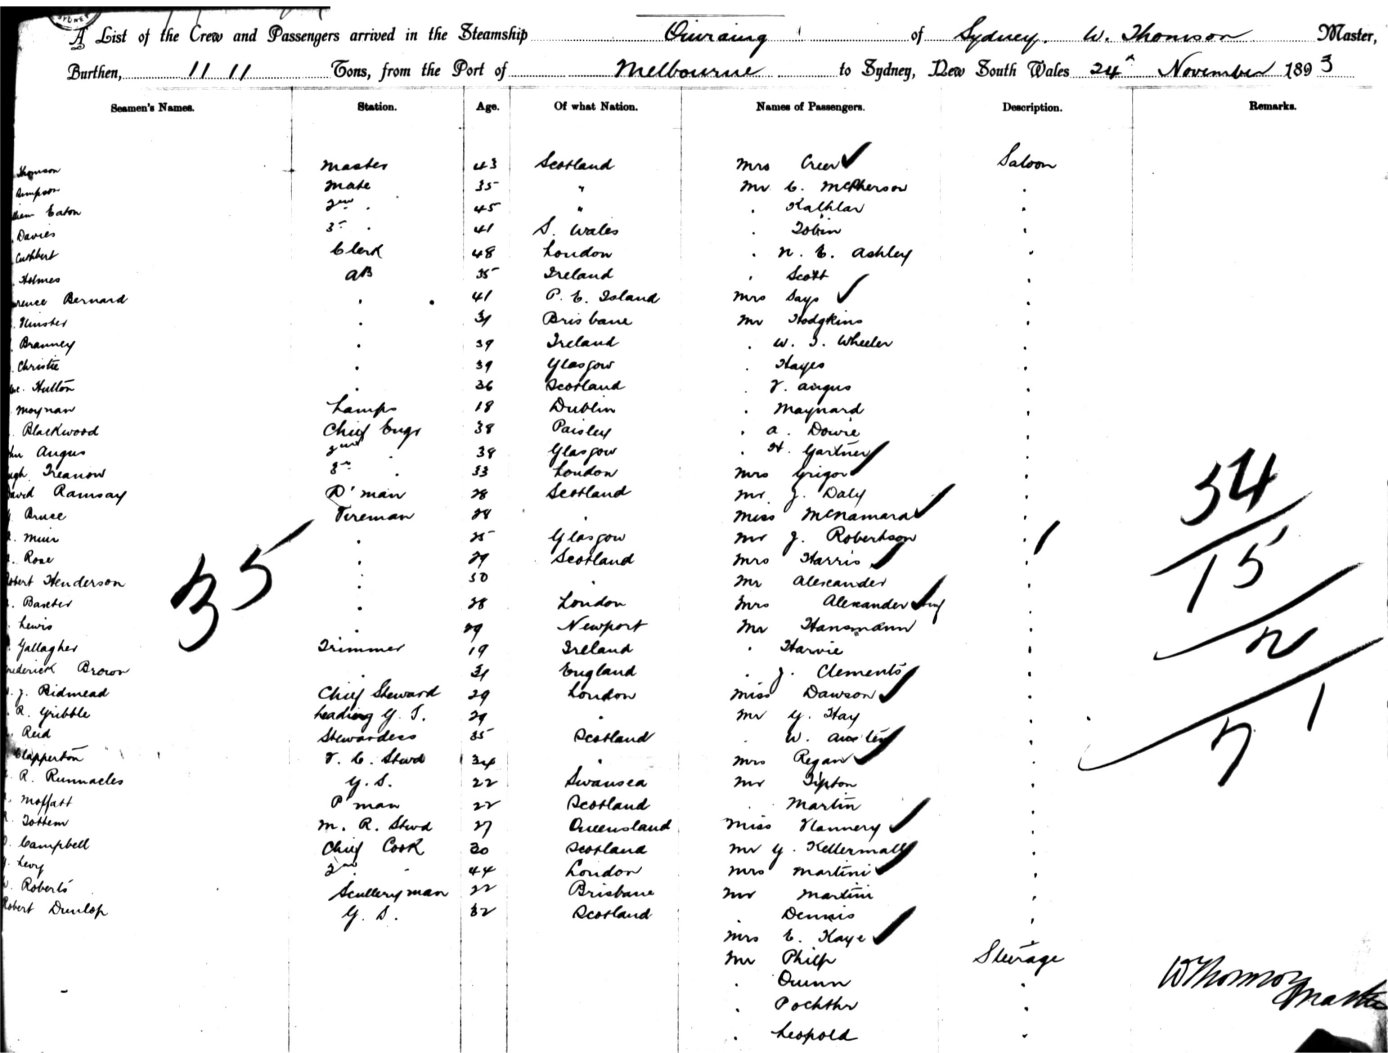 A List of the Crew and Passengers arrived in the Steamship Quiraing of Sydney, W. Thomson Master,
Burthen, 1111 Tons, from the Port of Melbourne to Sydney, New South Wales 24th November 1893
Seamen's Names. Station. Age. Of what Nation. Names of Passengers. Description. Remarks.
Thomson Master 43 Scotland Mrs Creer ✓ Saloon
Simpson Mate 35 " Mr C. McPherson "
Eaton 2nd " 45 " " "
Davies 3rd " 41 S. Wales " Tobin "
Cuthbert Clerk 48 London " N. E. Ashley "
Holmes AB 35 Ireland " Scott "
Bernard " 41 P. E. Island Mrs Says ✓ "
" Brisbane Mr Hodgkins "
Branney " 39 Ireland " W. J. Wheeler "
Christie " 39 Glasgow " Hayes "
Hutton " 36 Scotland " F. Angus "
Moynan Lamps 18 Dublin " Maynard "
Blackwood Chief Engr 38 Paisley " A. Dowie "
Angus 2nd " 38 Glasgow " H. Gartner ✓ "
Treanow 3rd " 33 London Mrs Grigor "
David Ramsay D'man 28 Scotland Mr J. Daly "
Bruce Fireman 28 " Miss McNamara ✓ "
Muir " 25 Glasgow Mr J. Robertson "
Rose " 29 Scotland Mrs Harris ✓ "
Robert Henderson " 30 " Mr Alexander "
Baxter " 28 London Mrs Alexander ✓ "
Lewis " 29 Newport Mr Hansmann "
Gallagher Trimmer 19 Ireland " Harvie "
Frederick Brown " England " J. Clements "
J. Ridmead Chief Steward 29 London Miss Dawson ✓ "
R. Gribble Leading G. S. 29 " Mr G. Hay "
Reid Stewardess 35 Scotland " W. Austen "
Clapperton F. C. Stwd 24 " Mrs Regan ✓ "
R. Runnacles G. S. 22 Swansea Mr Tipton "
Moffatt P'man 22 Scotland " Martin "
Tottem M. R. Stwd 27 Queensland Miss Flannery ✓ "
Campbell Chief Cook 30 Scotland Mr G. Kellermall "
Levy 2nd " 44 London Mrs Martini ✓ "
Roberts Scullery man 22 Brisbane Mr Martini "
Robert Dunlop G. S. 32 Scotland " Dennis "
Mrs E. Kaye ✓ "
Mr Philp Steerage
" Quinn "
" "
" Leopold "
35
34
15
2
71
W Thomson
Master